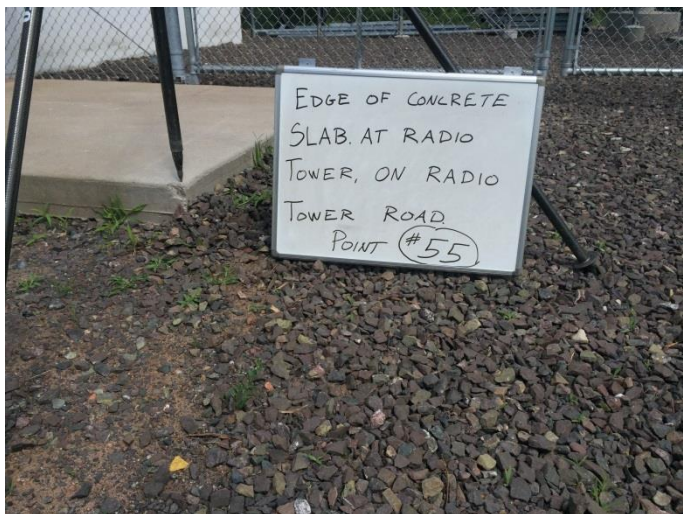 EDGE OF CONCRETE
SLAB. AT RADIO
TOWER, ON RADIO
TOWER ROAD
POINT #55